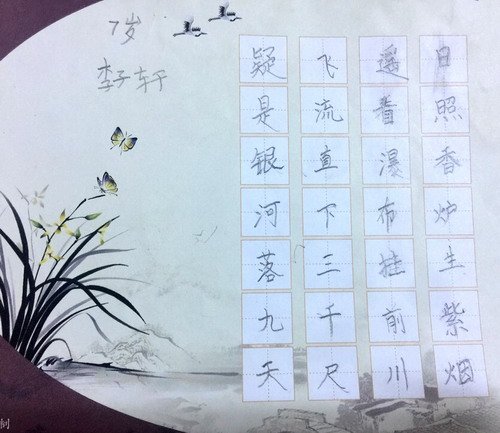 日照香炉生紫烟
遥看瀑布挂前川
飞流直下三千尺
疑是银河落九天
7岁
李子轩